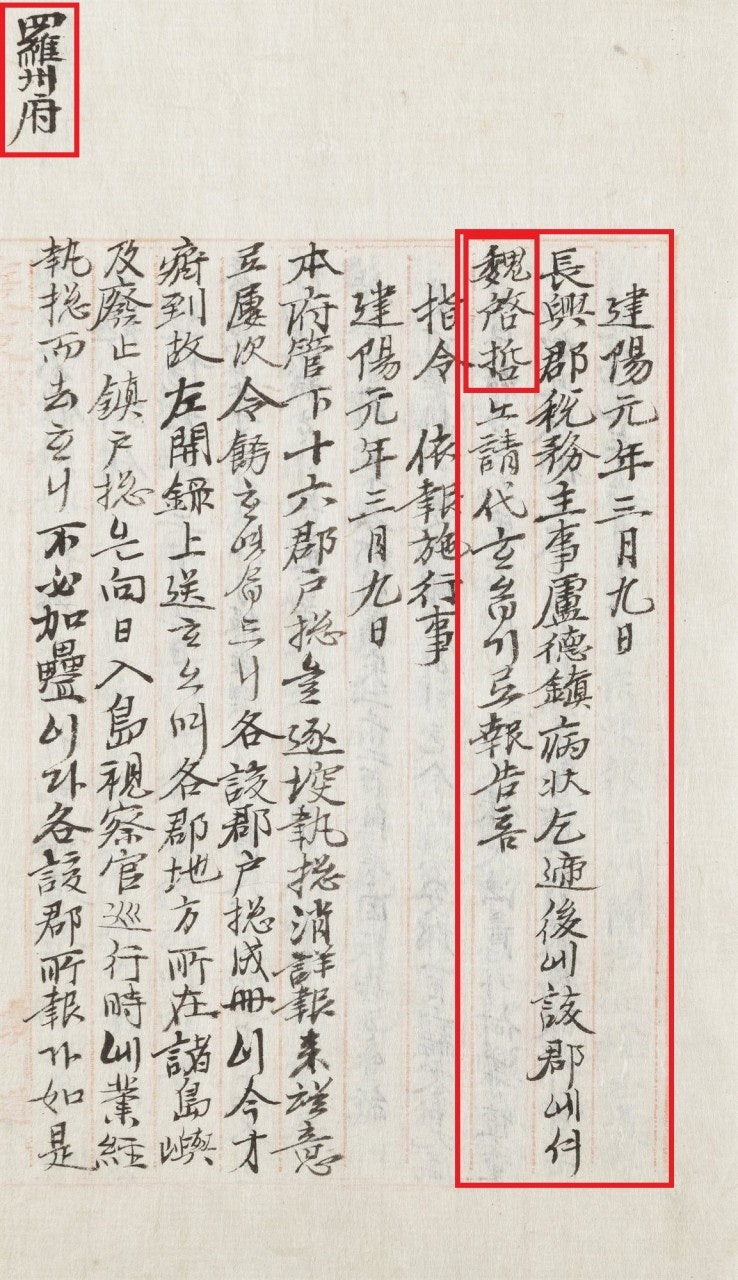 羅州府
建陽元年三月九日
長興郡稅務主事盧德鎭病狀乞遞後에該郡에셔
魏啓哲노請代ᄒᆞ얏기로報告홈
指令 依報施行事
建陽元年三月九日
本府管下十六郡戶摠을逐堗執摠消詳報來ᄒᆞᆯ意
로屢次令飭ᄒᆞ얏드니各該郡戶摠成冊이今才
齊到故左開錄上送ᄒᆞ오며各郡地方所在諸島嶼
及廢止鎭戶摠은向日入島視察官巡行時에業經
執摠而去ᄒᆞ니不必加疊이라各該郡所報가如是